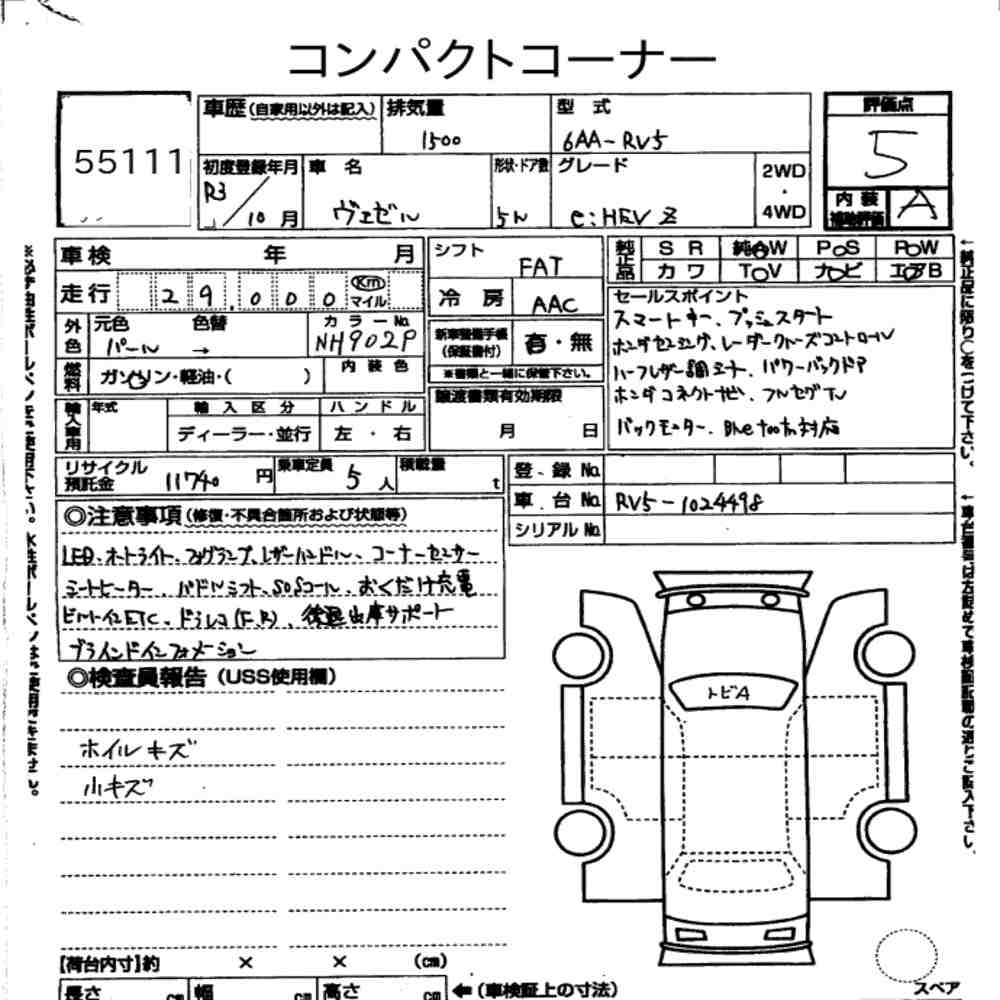 コンパクトコーナー
55111
車歴(自家用以外は記入) 排気量 1500 型式 6AA-RV5
初度登録年月 R3/10月 車名 ヴェゼル 形状・ドア数 5h グレード e:HEV Z 2WD・4WD
評価点 5
内装補助評価 A
車検 年 月
走行 29,000 Km マイル
シフト FAT
冷房 AAC
純正品 SR 純AW PS PW
カワ TV ナビ エアB
外色 元色 パール → 色替 カラーNo. NH902P
燃料 ガソリン・軽油・( ) 内装色
新車整備手帳(保証書付) 有・無
※書類と一緒に保管下さい。
輸入車用 年式 輸入区分 ディーラー・並行 ハンドル 左・右
譲渡書類有効期限 月 日
セールスポイント
スマートキー、プッシュスタート
ホンダセンシング、レーダークルーズコントロール
ハーフレザー調シート、パワーバックドア
ホンダコネクトナビ、フルセグTV
バックモニター、Bluetooth対応
リサイクル預託金 11740円 乗車定員 5人 積載量 t
登録No.
車台No. RV5-1024498
シリアルNo.
◎注意事項(修復・不具合箇所および状態等)
LED、オートライト、フォグランプ、レザーハンドル、コーナーセンサー
シートヒーター、パドルシフト、SOSコール、おくだけ充電
ビルトインETC、ドラレコ(F,R)、後退出庫サポート
ブラインドインフォメーション
◎検査員報告(USS使用欄)
ホイルキズ
小キズ
トビA
【荷台内寸】約 × × (cm)
長さ cm 幅 cm 高さ cm ←(車検証上の寸法)
スペア